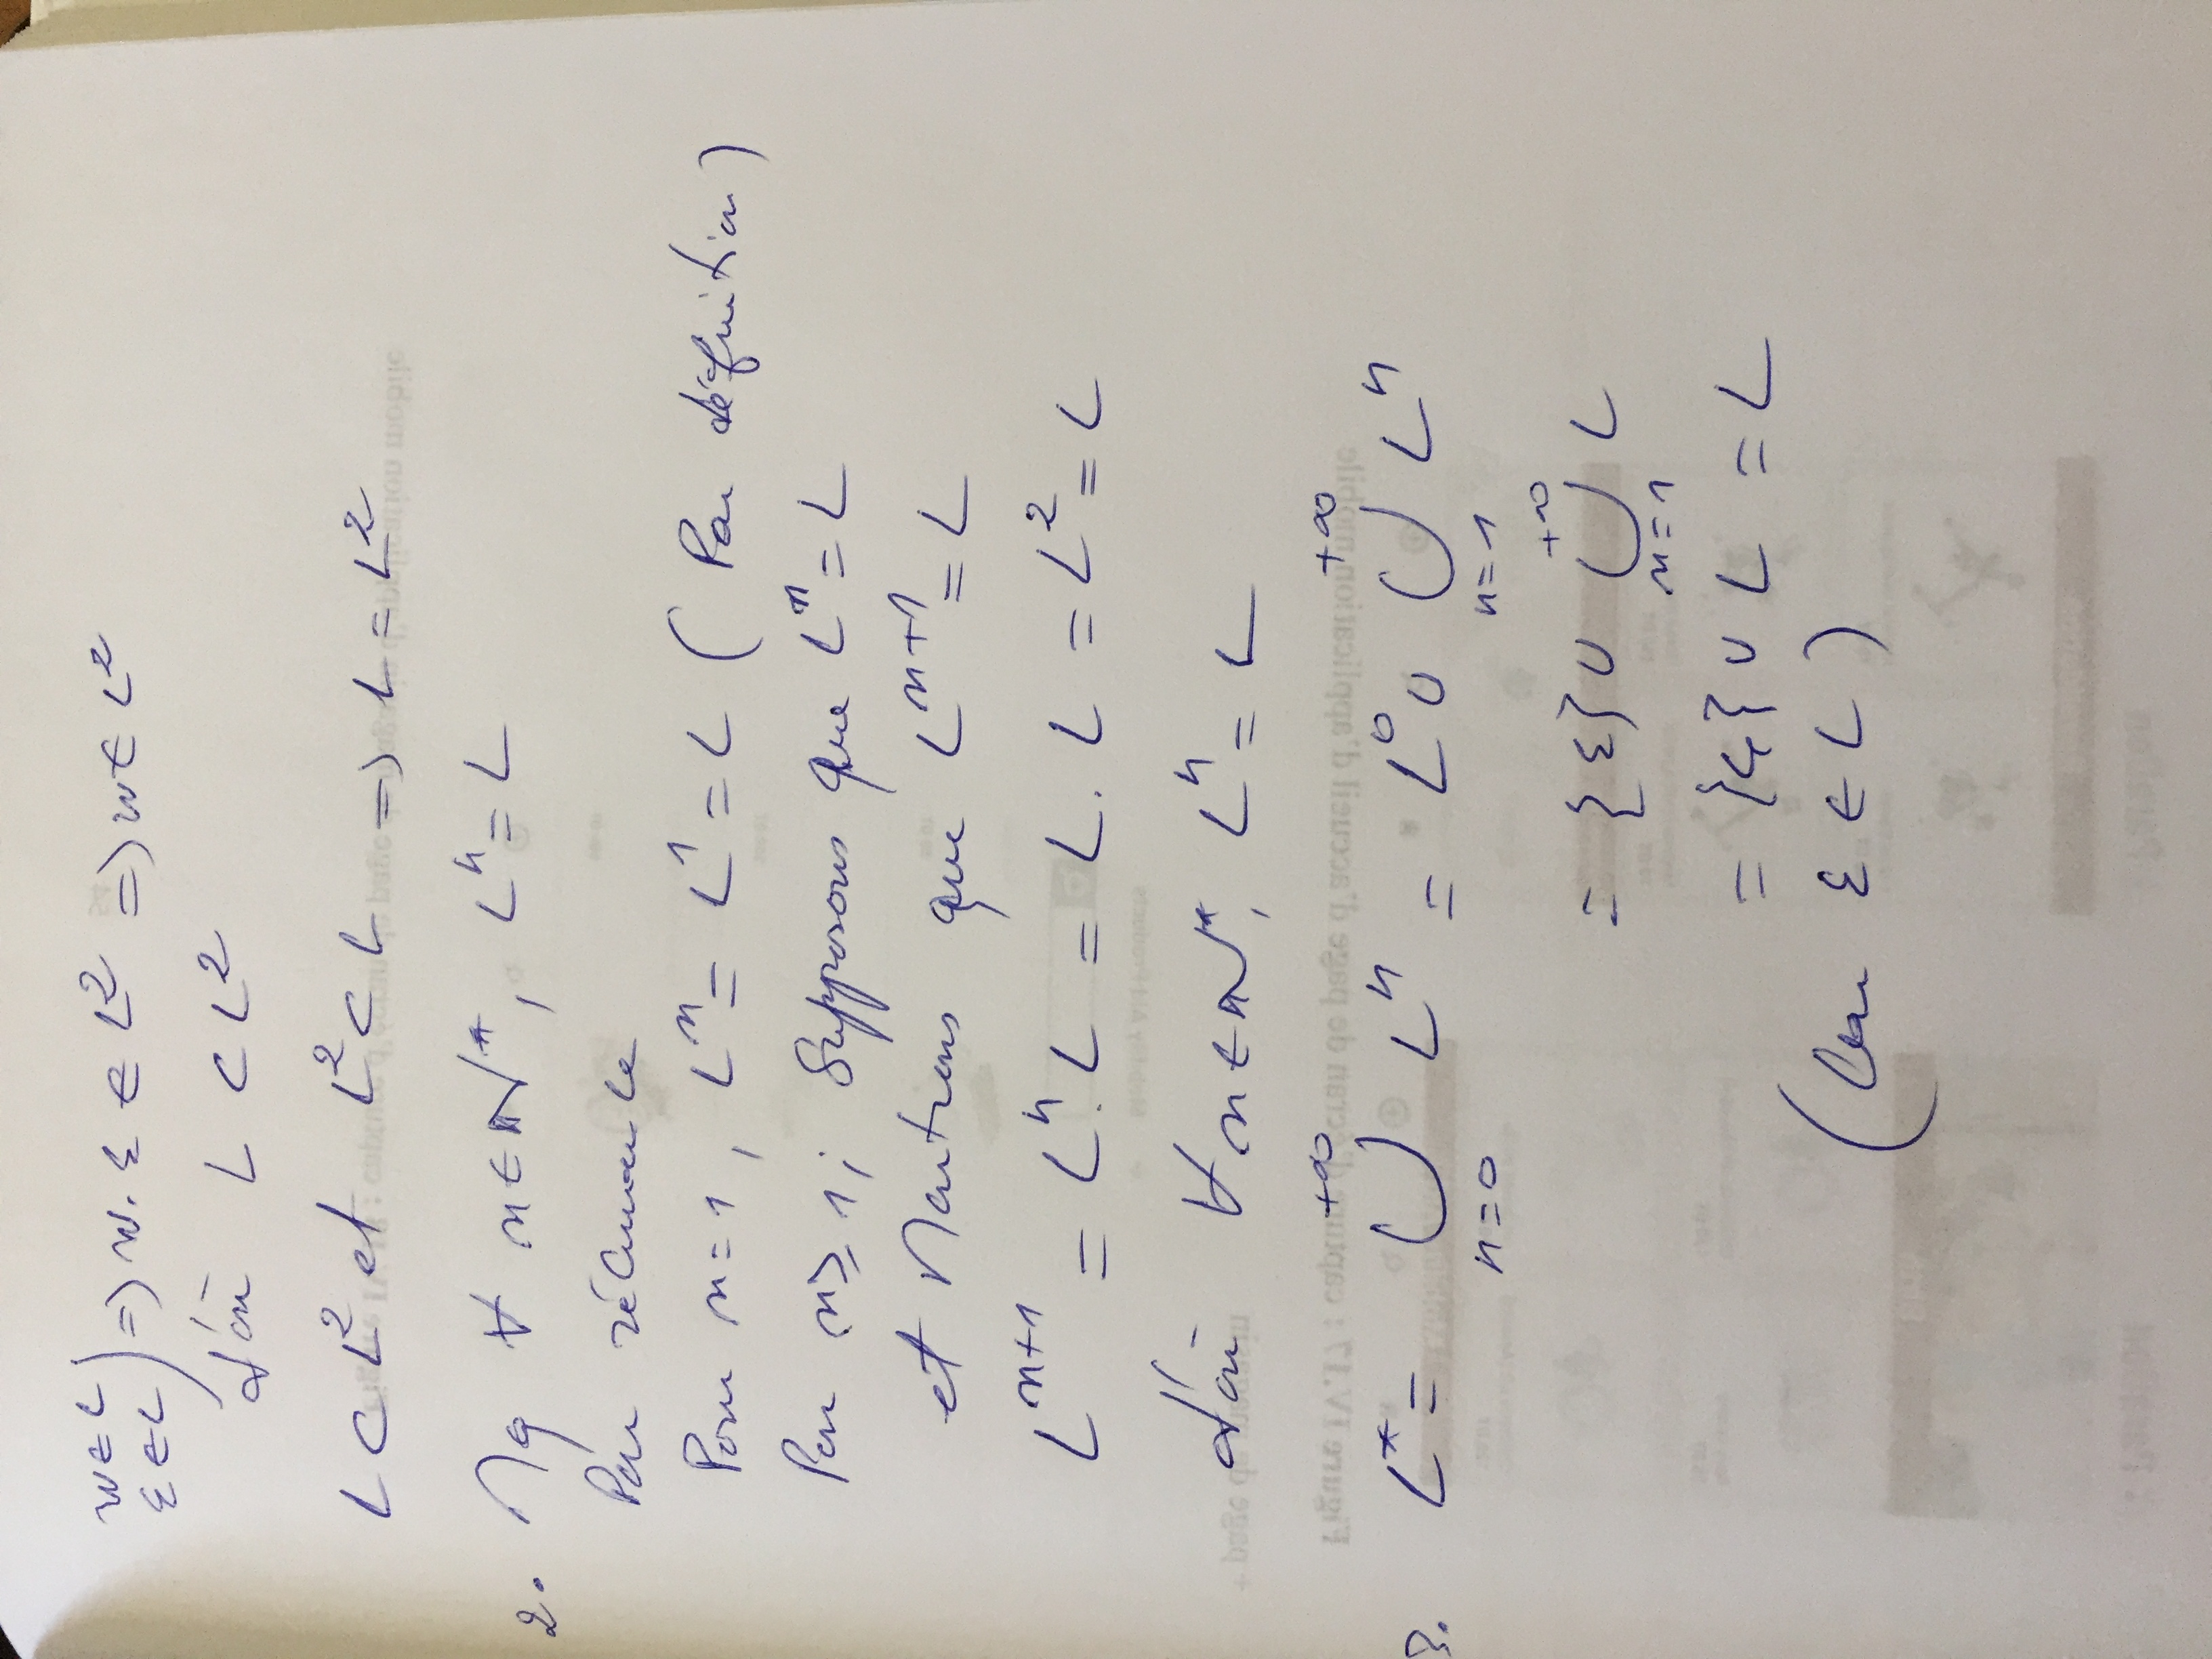 w ∈ L
ε ∈ L ) => w. ε ∈ L² => w ∈ L²
d'où L ⊂ L²
L ⊂ L² et L² ⊂ L => L = L²
2. Mq ∀ n ∈ ℕ*, Lⁿ = L
Par récurrence
Pour n = 1, Lⁿ = L¹ = L ( Par définition )
Pour n ≥ 1 ; Supposons que Lⁿ = L
et Montrons que Lⁿ⁺¹ = L
Lⁿ⁺¹ = Lⁿ. L = L. L = L² = L
d'où ∀ n ∈ ℕ*, Lⁿ = L
+∞ +∞
3. L* = ∪ Lⁿ = L⁰ ∪ ∪ Lⁿ
n=0 n=1
+∞
= {ε} ∪ ∪ L
n=1
= {ε} ∪ L = L
( Car ε ∈ L )
Figure IV.17 : capture d'écran de page d'accueil d'application mobile
+ page de magasin
Mobility Aid Products